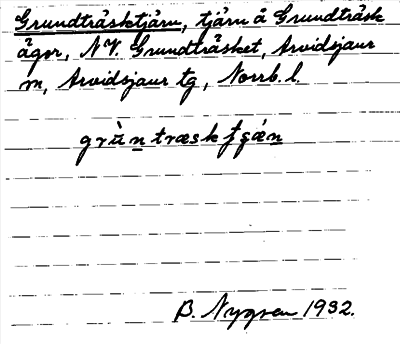 Grundträsktjärn, tjärn å Grundträsk
ägor, N.V. Grundträsket, Arvidsjaur
sn, Arvidsjaur tg, Norrb. l.
B. Nygren 1932.